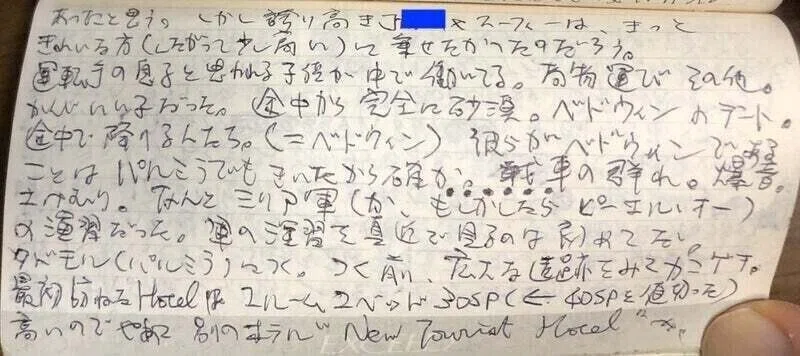 あったと思う。しかし誇り高き スーフィーは、きっと
きれいな方(したがって少し高い)に乗せたかったのだろう。
運転手の息子と思われる子供が中で働いてる。荷物運びその他。
かんじいい子だった。途中から完全に砂漠。ベドウィンのテント。
途中で降りる人たち。(=ベドウィン) 彼らがベドウィンである
ことはパルミラでもきいたから確か。戦車の群れ。爆音。
土けむり。なんとシリア軍(か、もしかしたらピーエルオー)
の演習だった。軍の演習を真近で見るのは初めてだ
タドモル(パルミラ)につく。つく前、広大な遺跡をみてカンゲキ。
最初訪ねるHotelは1ルーム2ベッド30SP(← 40SPを値切った)
高いのでやめて別のホテル"New Tourist Hotel"へ。
EXCEED